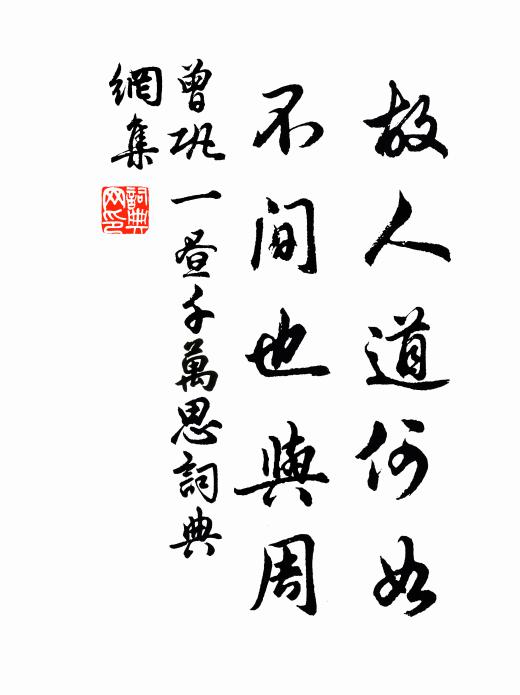 故人道何如
不間也與周
曾巩一晝千萬思詞典
網集
詞典網印